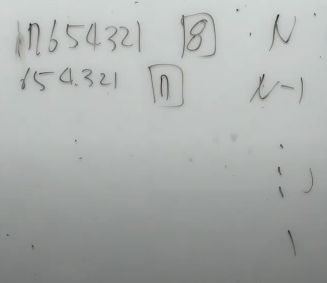 17654321 8 N
654321 7 N-1
1